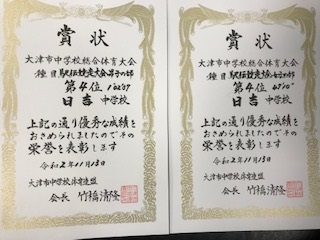 賞状
大津市中学校総合体育大会
種目 駅伝競走大会男子の部
第4位
日吉中学校
上記の通り優秀な成績を
おさめられましたのでその
栄誉を表彰します
令和2年11月13日
大津市中学校体育連盟
会長 竹橋清隆
賞状
大津市中学校総合体育大会
種目 駅伝競走大会女子の部
第4位
日吉中学校
上記の通り優秀な成績を
おさめられましたのでその
栄誉を表彰します
令和2年11月13日
大津市中学校体育連盟
会長 竹橋清隆